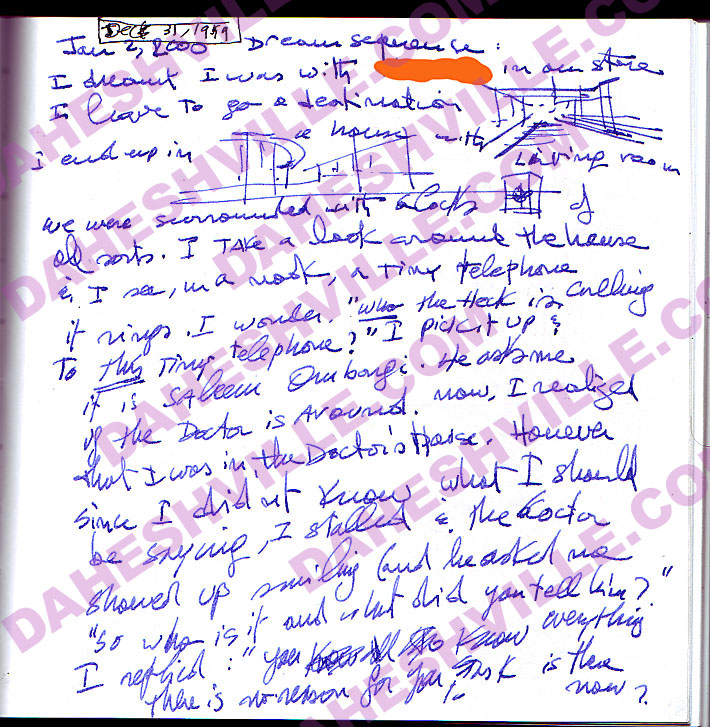 Dec 31, 1999
Jan 2, 2000 Dream sequence:
I dreamt I was with in our store
I have to go a destination
I end up in a house with Living room
we were surrounded with clocks of
all sorts. I TAKE a look around the house
& I see, in a nook, a Tiny telephone
it rings. I wonder. "who the Heck is calling
To This Tiny telephone?" I pick it up &
it is SAleem Qumbargi. He asks me
if the Doctor is Around. now, I realized
that I was in the Doctor's House. However
since I did nt Know what I should
be saying, I stalled & the doctor
showed up smiling (and he asked me
"So who is it and what did you tell him?"
I replied: "you Know everything
There is no reason for you ask is there now?
DAHESHVILLE.COM